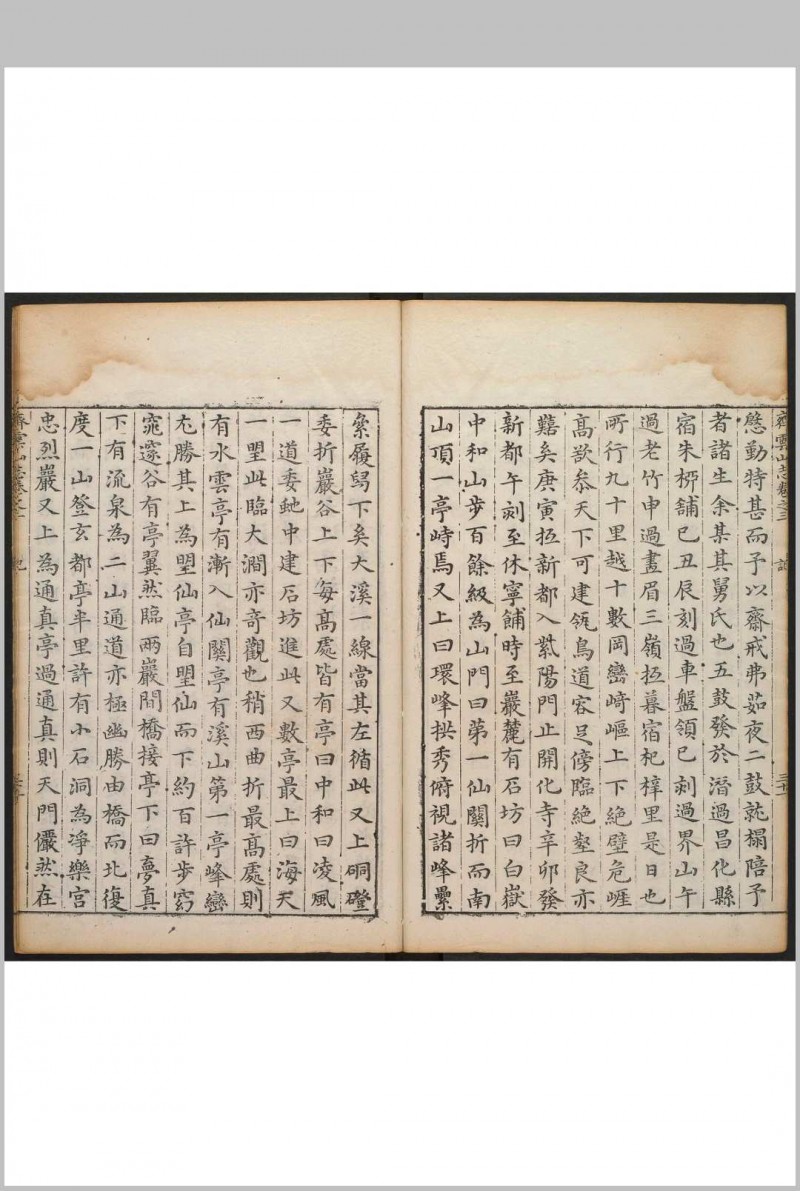 齊雲山志卷之三
慇勤特甚而予以齋戒弗茹夜二鼓就榻陪予
者諸生余某其舅氏也五鼓發於潛過昌化縣
宿朱桞舖己丑辰刻過車盤領巳刻過界山午
過老竹申過畫眉三嶺抵暮宿杞梓里是日也
所行九十里越十數岡巒崎嶇上下絶壁危崕
高欲叅天下可建瓴鳥道容足傍臨絶壑良亦
囏矣庚寅抵新都入紫陽門止開化寺辛卯發
新都午刻至休寧餔時至巖麓有石坊曰白嶽
中和山步百餘級為山門曰第一仙關折而南
山頂一亭峙焉又上曰環峰拱秀俯視諸峰纍
纍履舄下矣大溪一線當其左循此又上硐磴
委折巖谷上下每高處皆有亭曰中和曰凌風
一道委虵中建石坊進此又數亭最上曰海天
一望此臨大澗亦竒觀也稍西曲折最高處則
有水雲亭有漸入仙關亭有溪山第一亭峰巒
尤勝其上為望仙亭自望仙而下約百許步窈
窕邃谷有亭翼然臨兩巖間橋接亭下曰夢真
下有流泉為二山通道亦極幽勝由橋而北復
度一山登玄都亭半里許有小石洞為淨樂宮
忠烈巖又上為通真亭過通真則天門儼然在